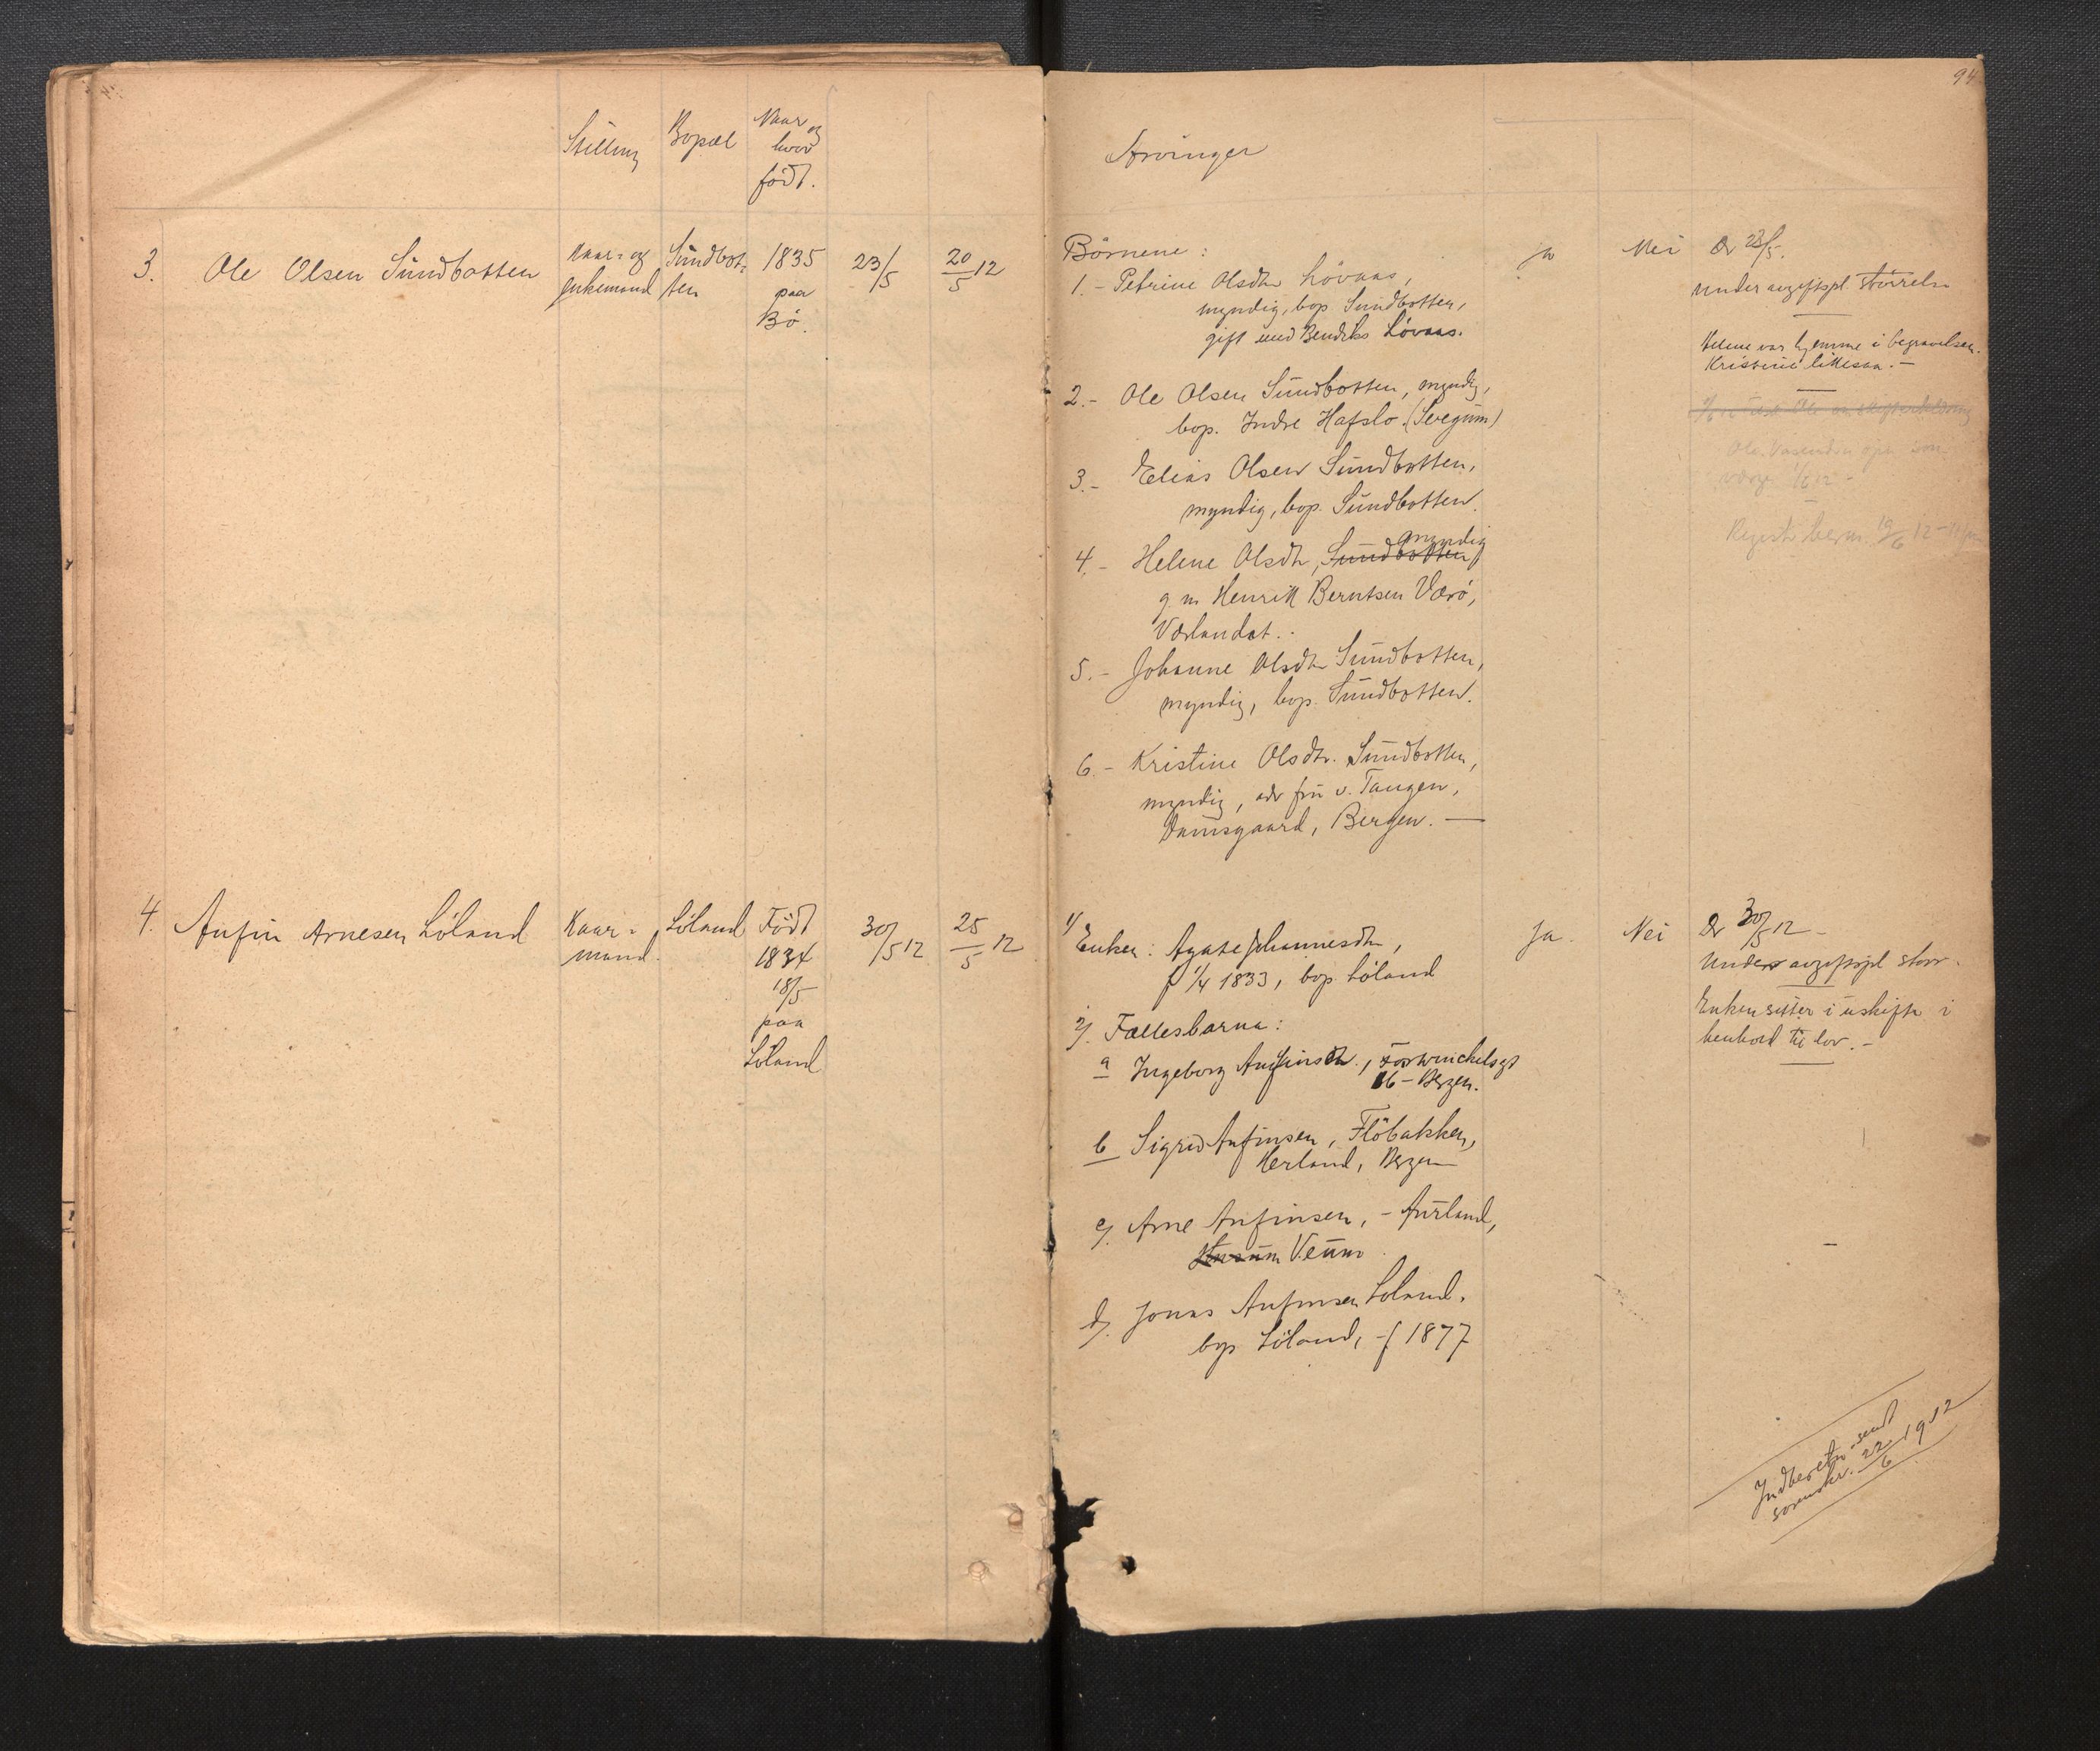 94
Stilling
Bopæl
Naar og
hvor
født.
Arvinger
3.
Ole Olsen Sundbotten
Kaar- og
Enkemand
Sundbot-
ten
1835
paa
Bö.
23/5
20/5 12
Børnene:
1.- Petrine Olsdtr Lövaas,
myndig, bop Sundbotten,
gift med Bendiks Lövaas.
2.- Ole Olsen Sundbotten, myndig,
bop. Indre Hafslo (Svegum)
3.- Elias Olsen Sundbotten,
myndig, bop. Sundbotten.
myndig
4.- Helene Olsdtr, Sundbotten
g. m Henrik Berntsen Værö,
Værlandet.
5.- Johanne Olsdtr Sundbotten,
myndig, bop. Sundbotten.
6.- Kristine Olsdtr. Sundbotten,
myndig, adr fru v. Tangen,
Damsgaard, Bergen. —
ja
Nei
Dr 23/5.
under avgiftspl. størrelse
Helene var hjemme i begravelsen.
Kristine likesaa. —
Registr. 19/6 12
4.
Anfin Arnesen Löland
Kaar-
mand.
Löland
Født
1834
18/5
paa
Löland
30/5 12
25/5 12
1/ Enken: Agate Johannesdtr,
f 1/4 1833, bop Löland
2/. Fællesbarna:
a Ingeborg Anfinsdtr.,
16 - Bergen.
b Sigrid Anfinsen, Flöbakken,
Herland, Bergen
c/. Arne Anfinsen, - Aurland,
Veum
d/. Jonas Anfinsen Löland.
bop Löland, - f 1877
Ja
Nei
Dr 30/5 12 -
Under avgiftspl størr.
Enken sitter i uskifte i
henhold til lov. -
Indberetn. sendt
sorenskr. 22/6 1912